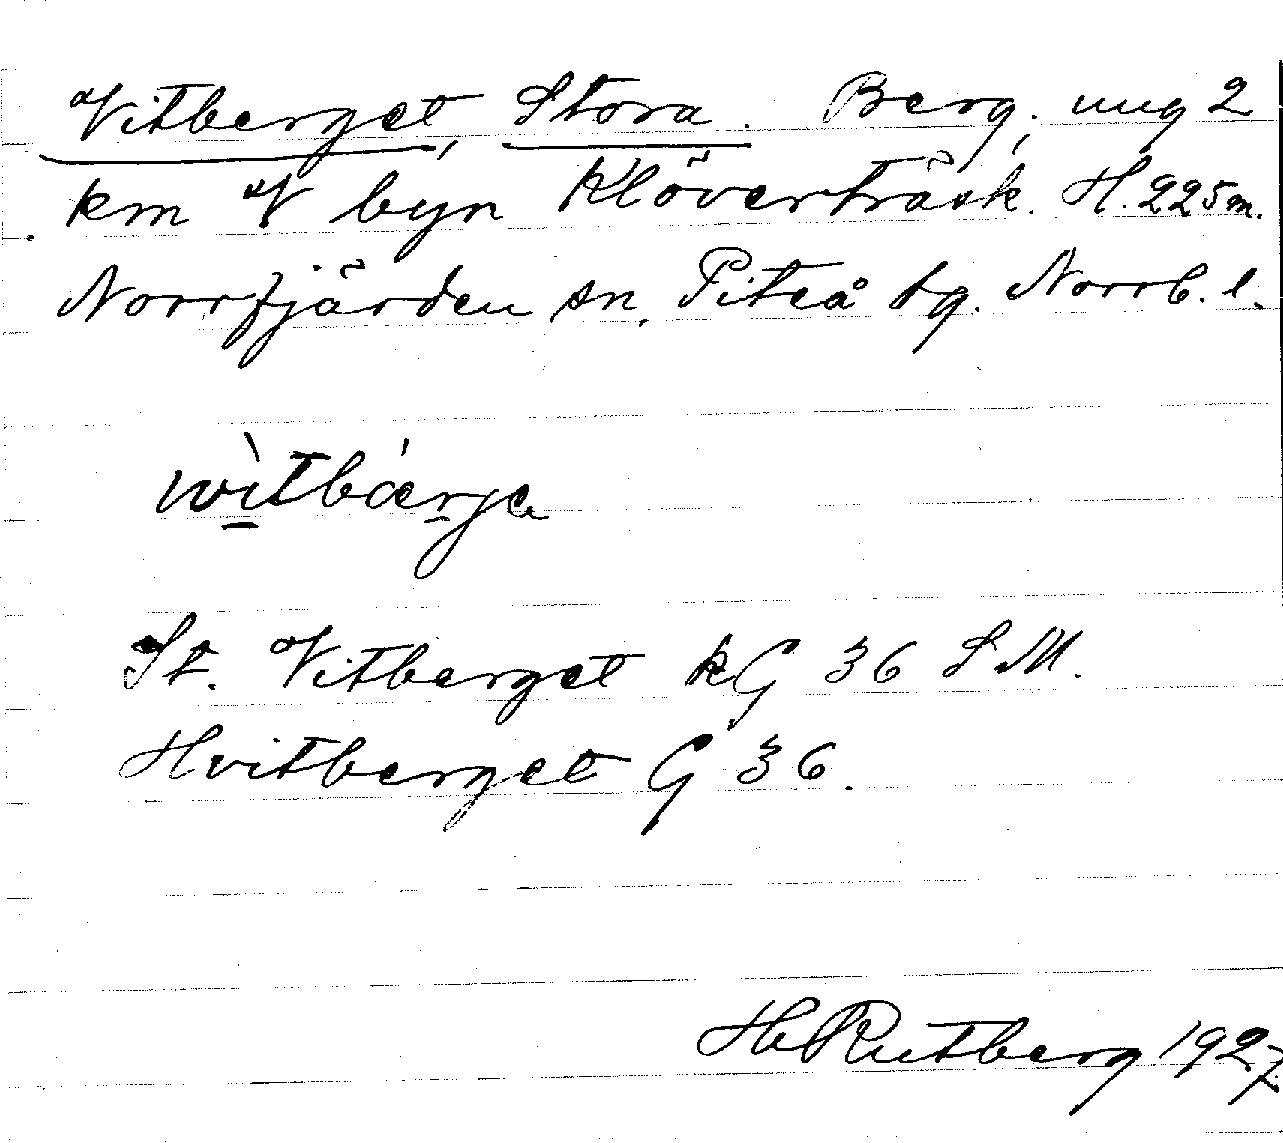 Vitberget, Stora. Berg, ung 2
km V byn Klöverträsk. H. 225 m.
Norrfjärden sn, Piteå tg. Norrb. l.
wìtbárja
St. Vitberget kG 36 S M.
Hvitberget G 36.
Hb Rutberg 1927